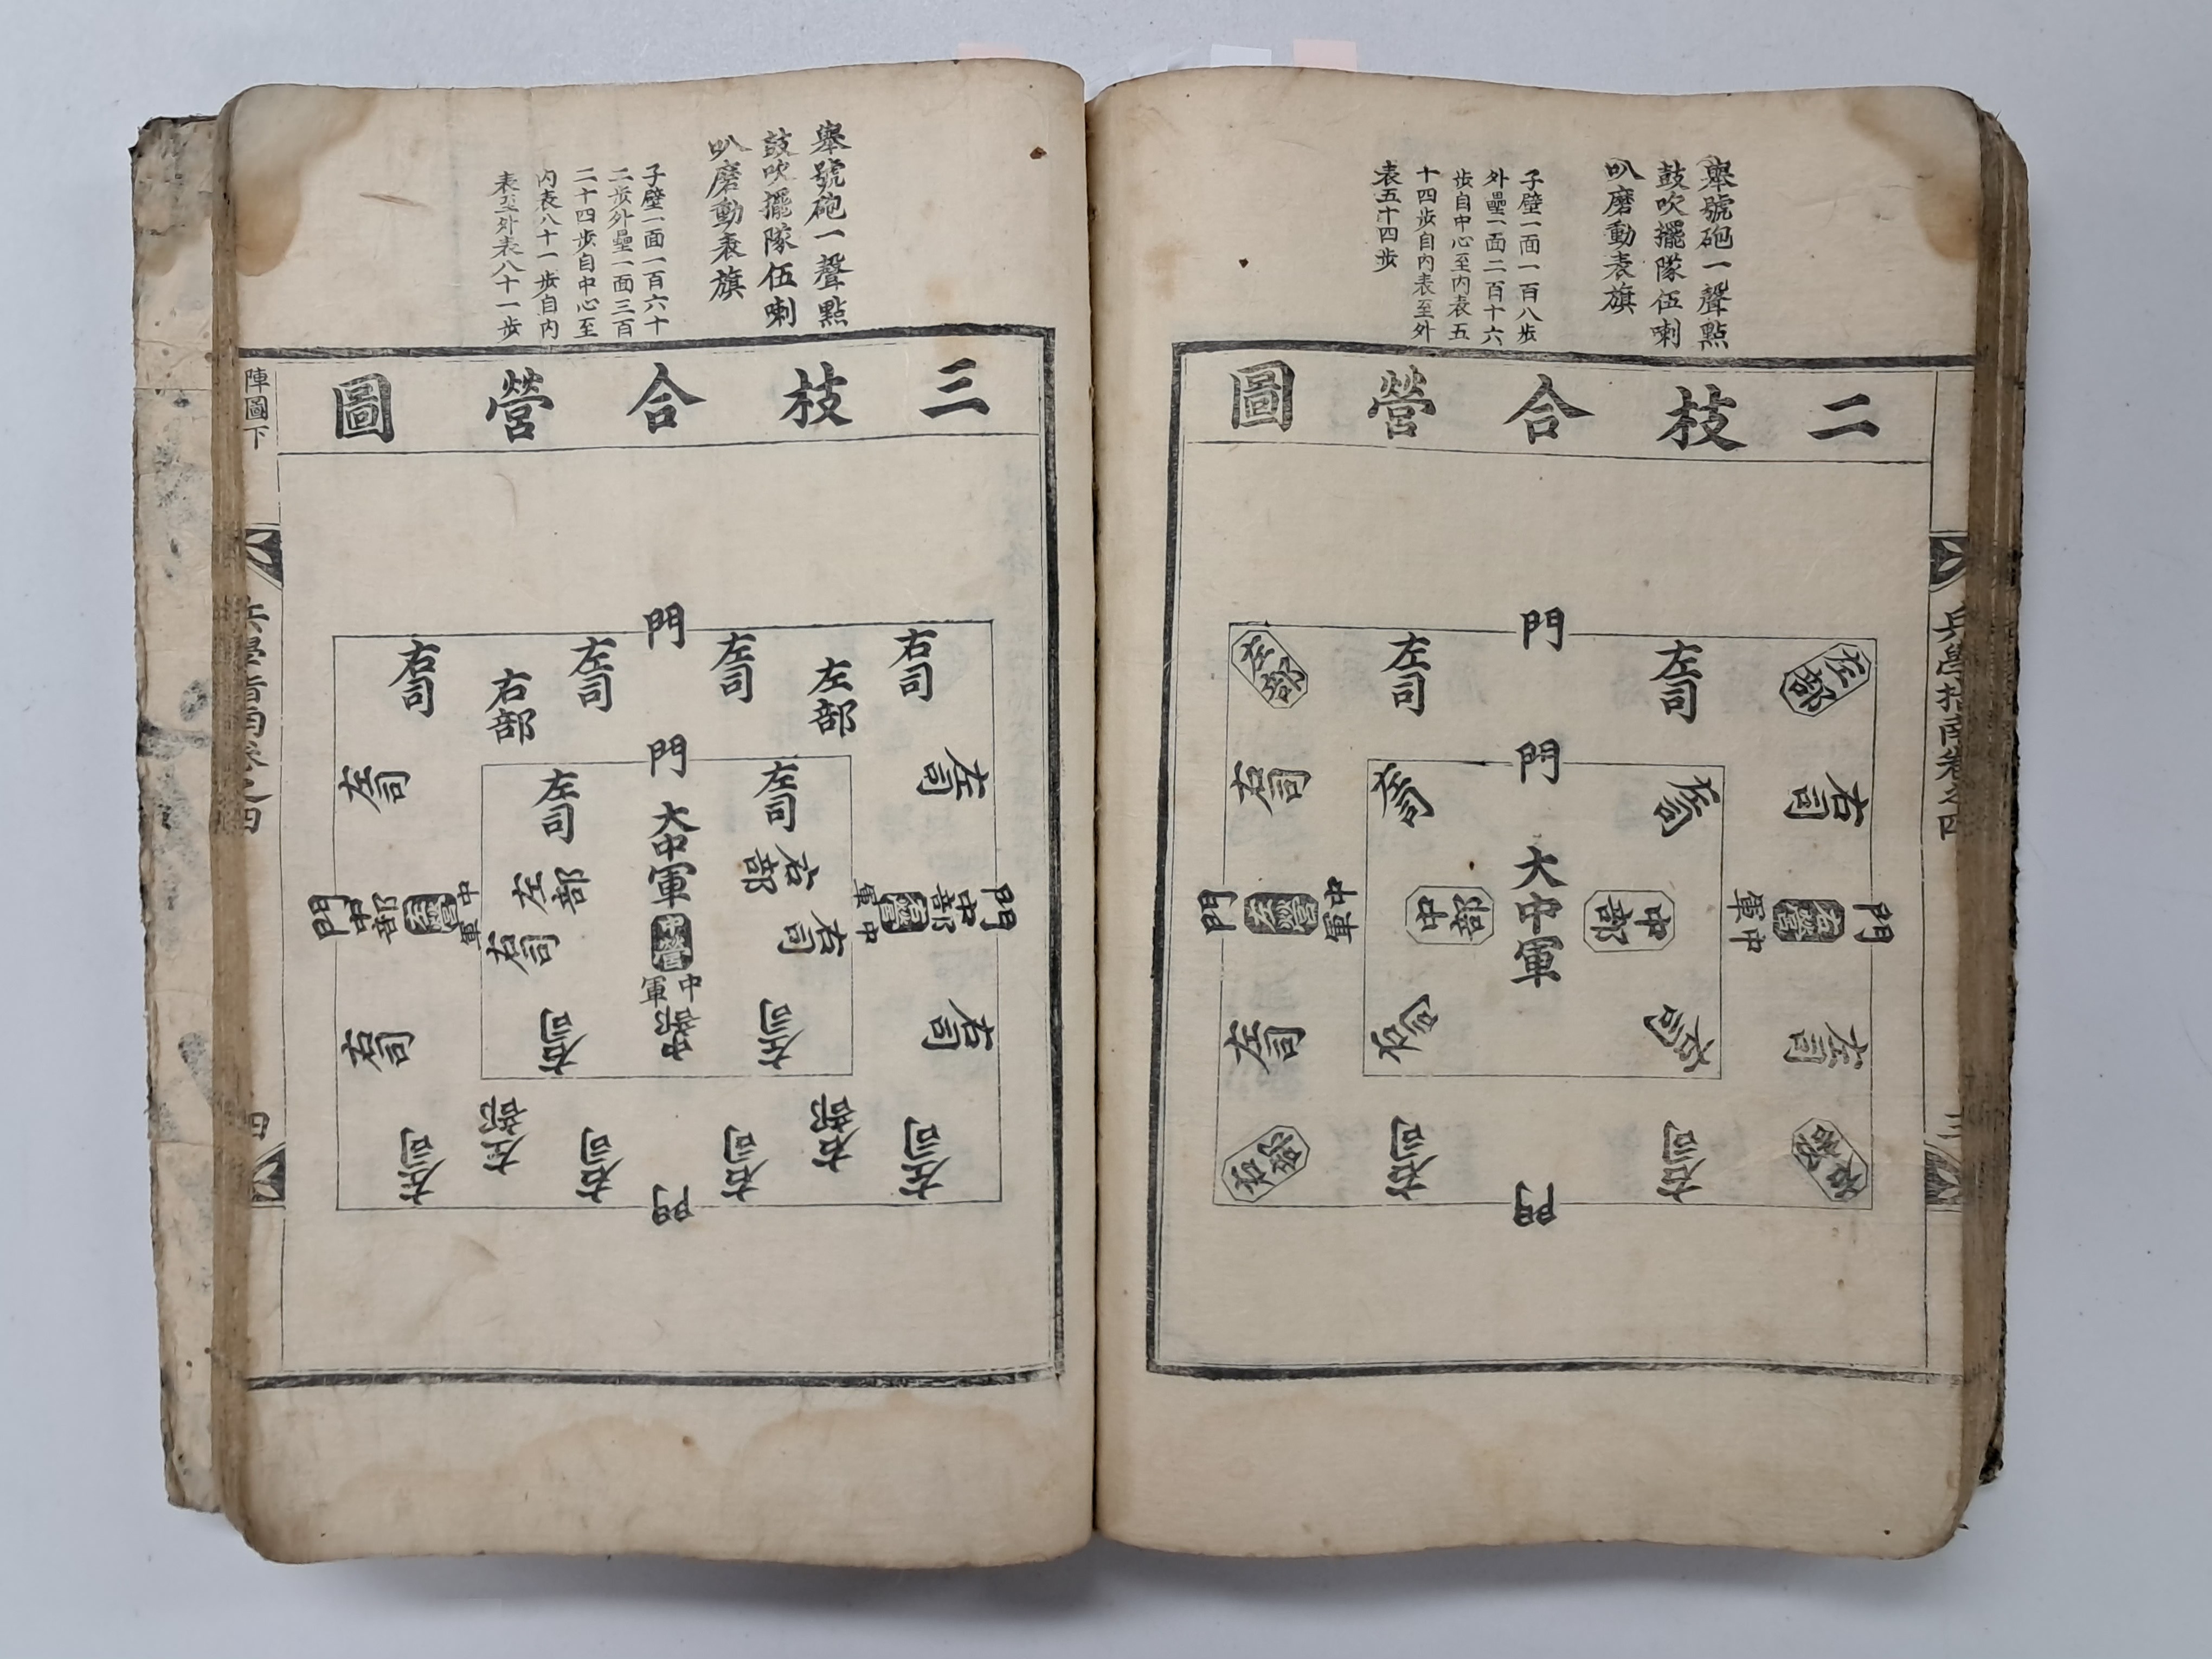 舉號砲一聲點
鼓吹擺隊伍喇
叭磨動表旗
子壁一面一百八步
外壘一面二百十六
步自中心至內表五
十四步自內表至外
表五十四步
二枝合營圖
門
左部
左司
左司
左部
門
右司
左司
左司
右司
門
中軍
右營
中部
大中軍
中部
中軍
左營
門
左司
右司
右司
左司
右部
右司
右司
右部
門
兵學指南卷之四
三
舉號砲一聲點
鼓吹擺隊伍喇
叭磨動表旗
子壁一面一百六十
二步外壘一面三百
二十四步自中心至
內表八十一步自內
表至外表八十一步
三枝合營圖
門
右司
左部
左司
左司
右部
右司
門
左司
左司
大中軍
左司
左司
右部
左部
門
中部
右營
中軍
右司
中營
中軍
中部
右司
中軍
左營
中部
門
右司
左司
右司
右司
右部
左部
左司
右司
右司
左司
門
陣圖下
兵學指南卷之四
四